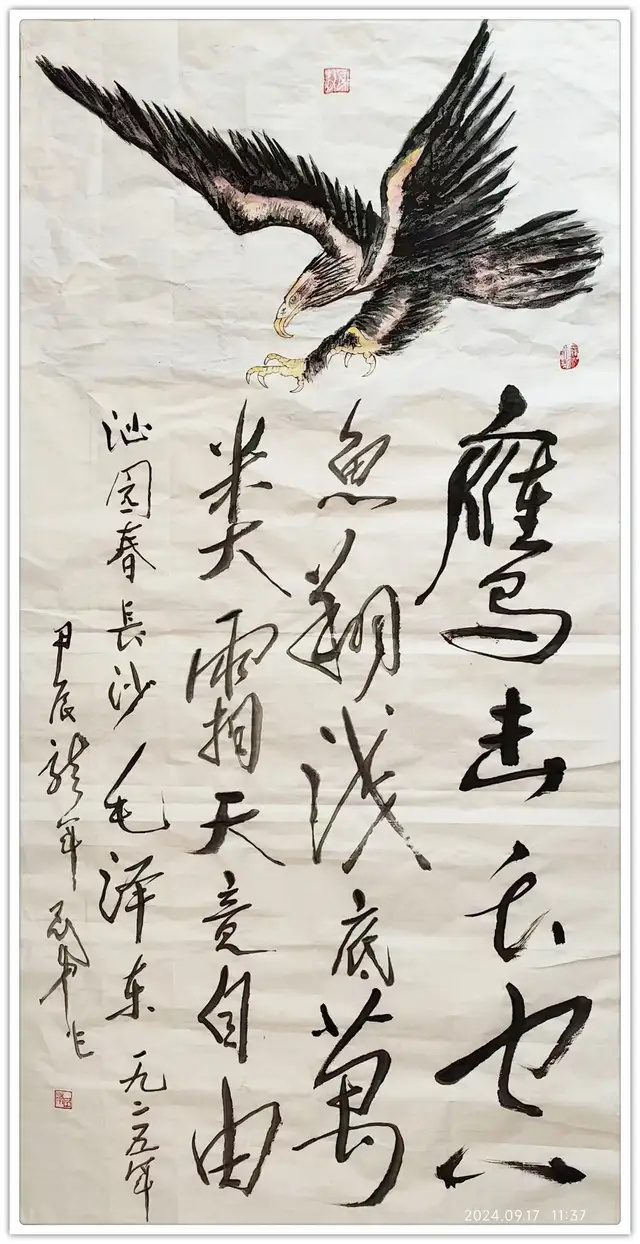 鹰击长空
鱼翔浅底萬
类霜天竟自由
沁园春長沙毛泽东一九二五年
甲辰龍年
2024.09.17 11:37